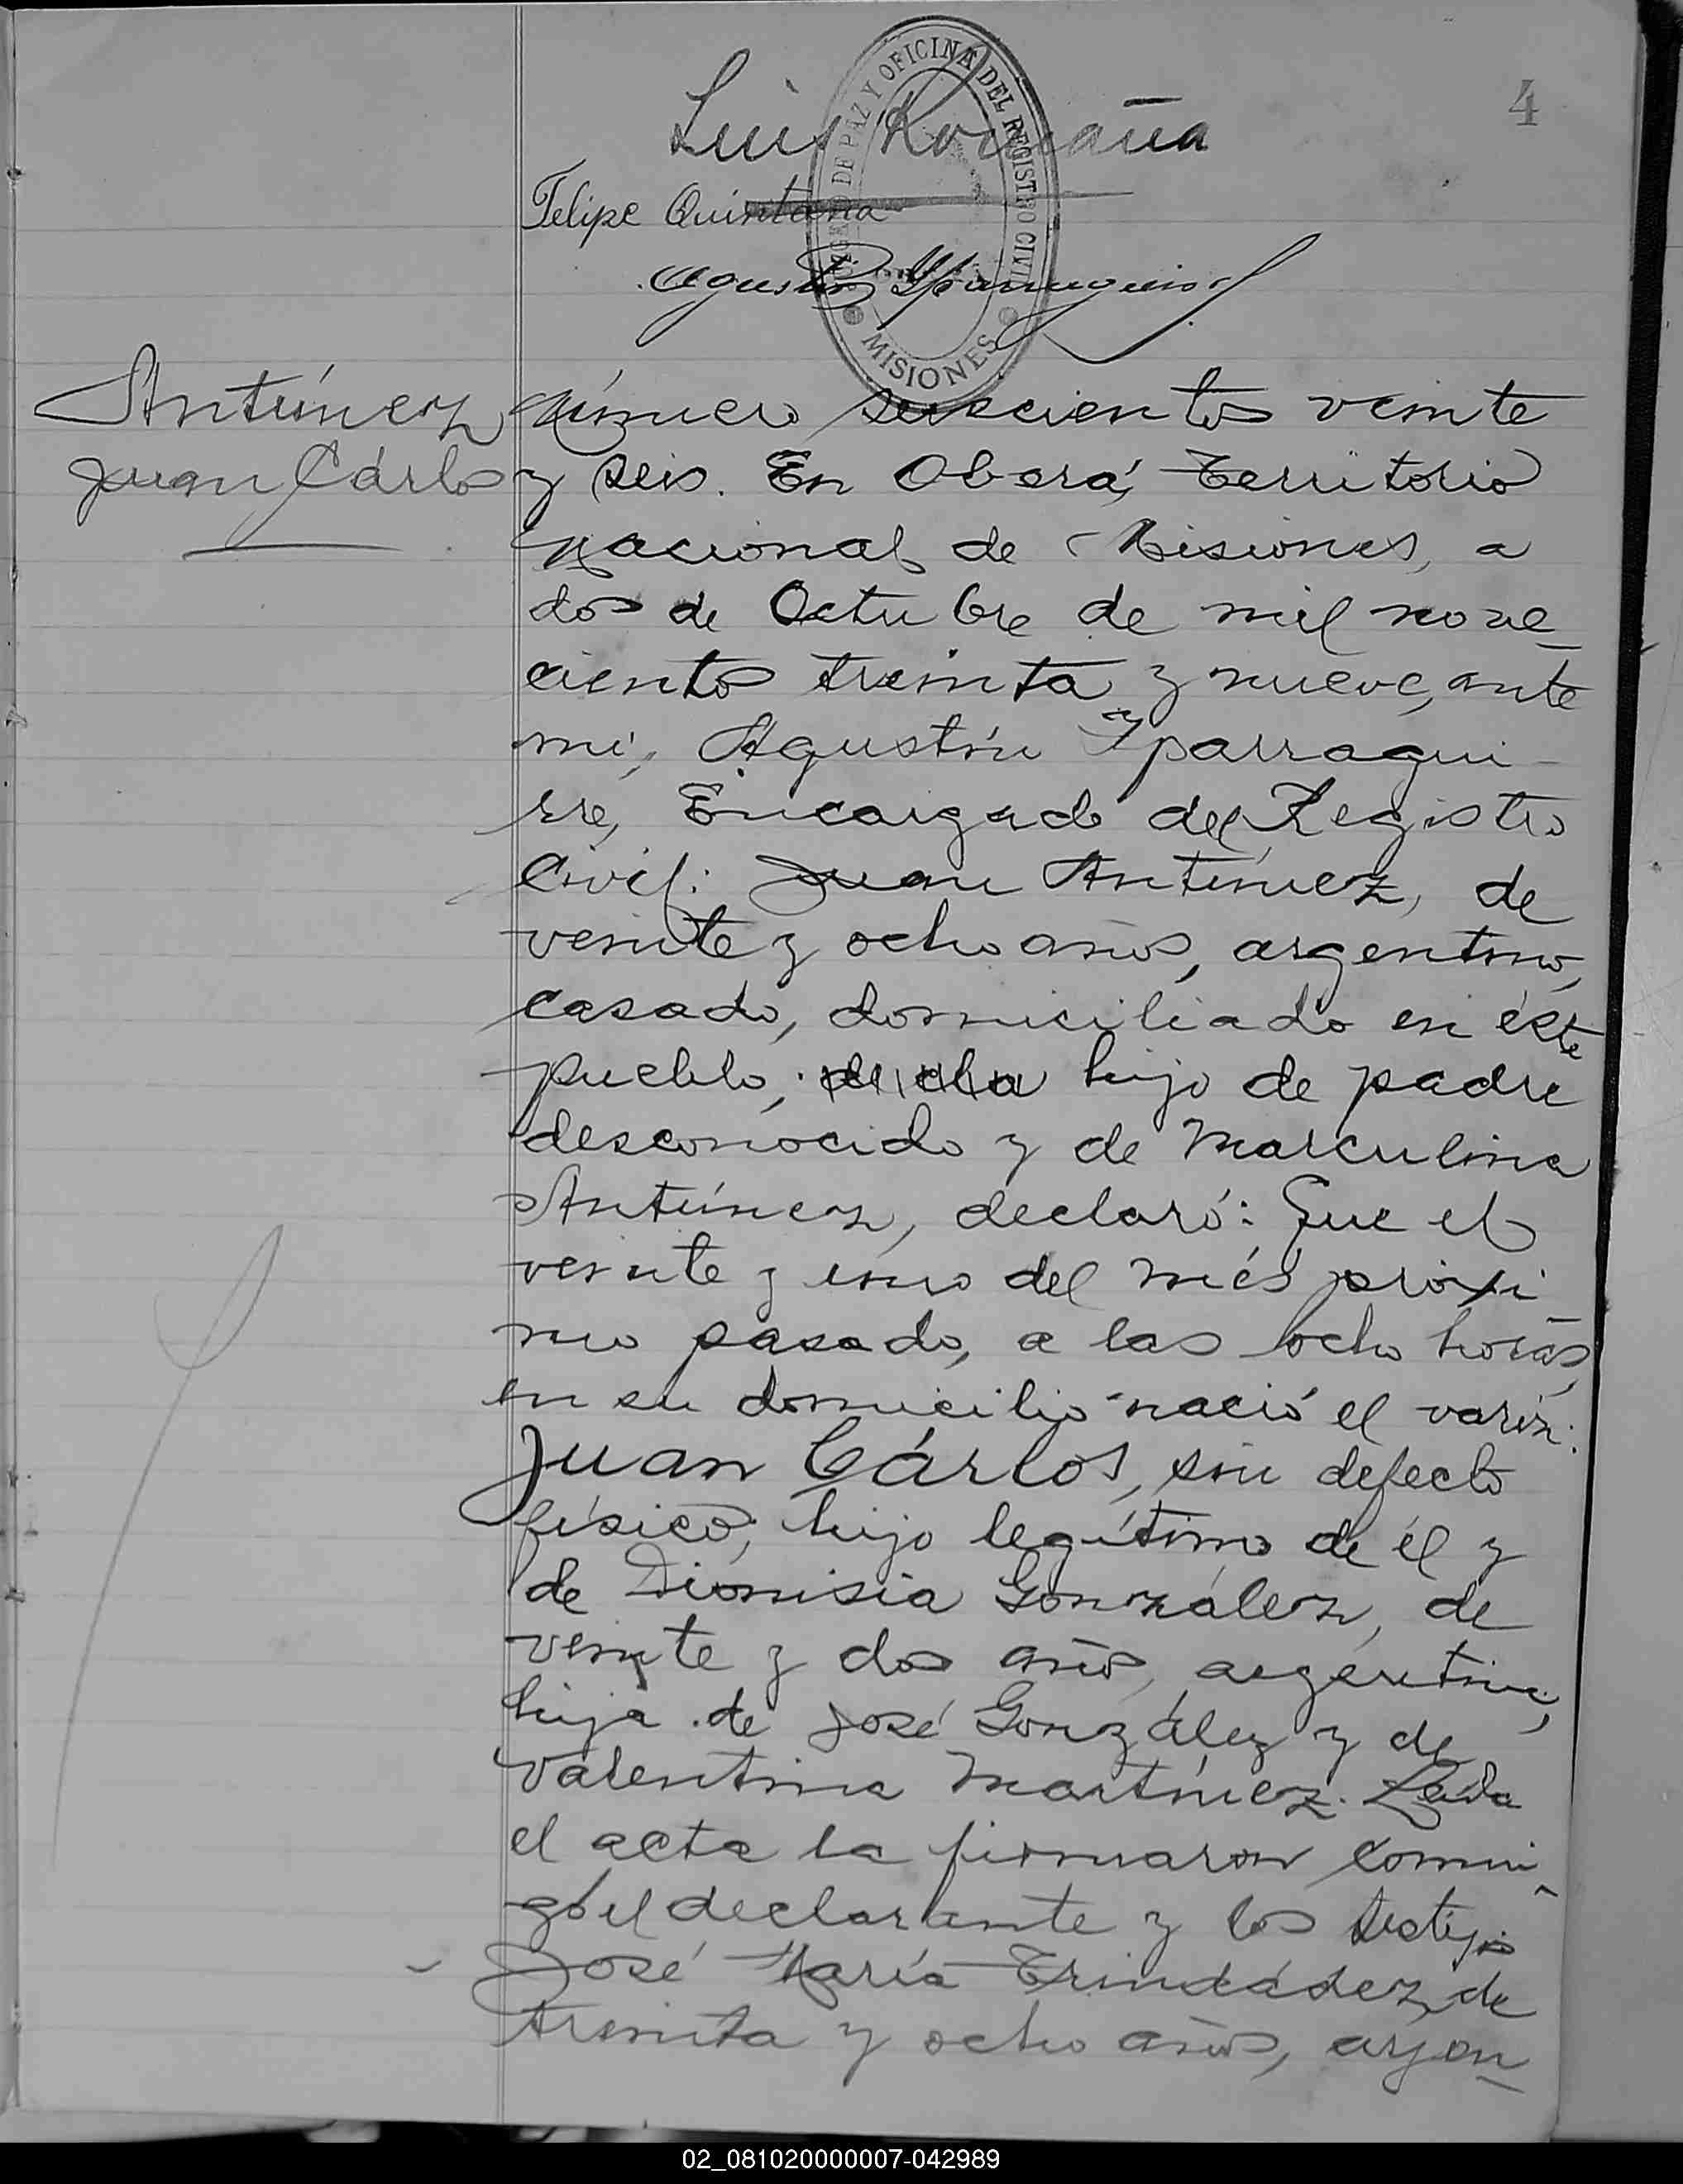 4
Luis
JUZGADO DE PAZ Y OFICINA DEL REGISTRO CIVIL
MISIONES
Felipe Quintana
Antúnez
Juan Cárlos
Número seiscientos veinte
y seis. En Oberá, Territorio
Nacional de Misiones, a
dos de Octubre de mil nove-
cientos treinta y nueve, ante
mí, Agustín Yparragui-
rre, Encargado del Registro
Civil: Juan Antúnez, de
veinte y ocho años, argentino,
casado, domiciliado en éste
pueblo, hijo de padre
desconocido y de Marculina
Antúnez, declaró: Que el
veinte y uno del més próxi-
mo pasado, a las ocho horas,
en su domicilio nació el varón:
Juan Cárlos, sin defecto
físico, hijo legítimo de él y
de Dionisia González, de
veinte y dos años, argentina,
hija de José González y de
Valentina Martínez. Leída
el acta la firmaron conmi-
go el declarante y los testigos
José María Trindádez, de
treinta y ocho años, argen-
02_081020000007-042989